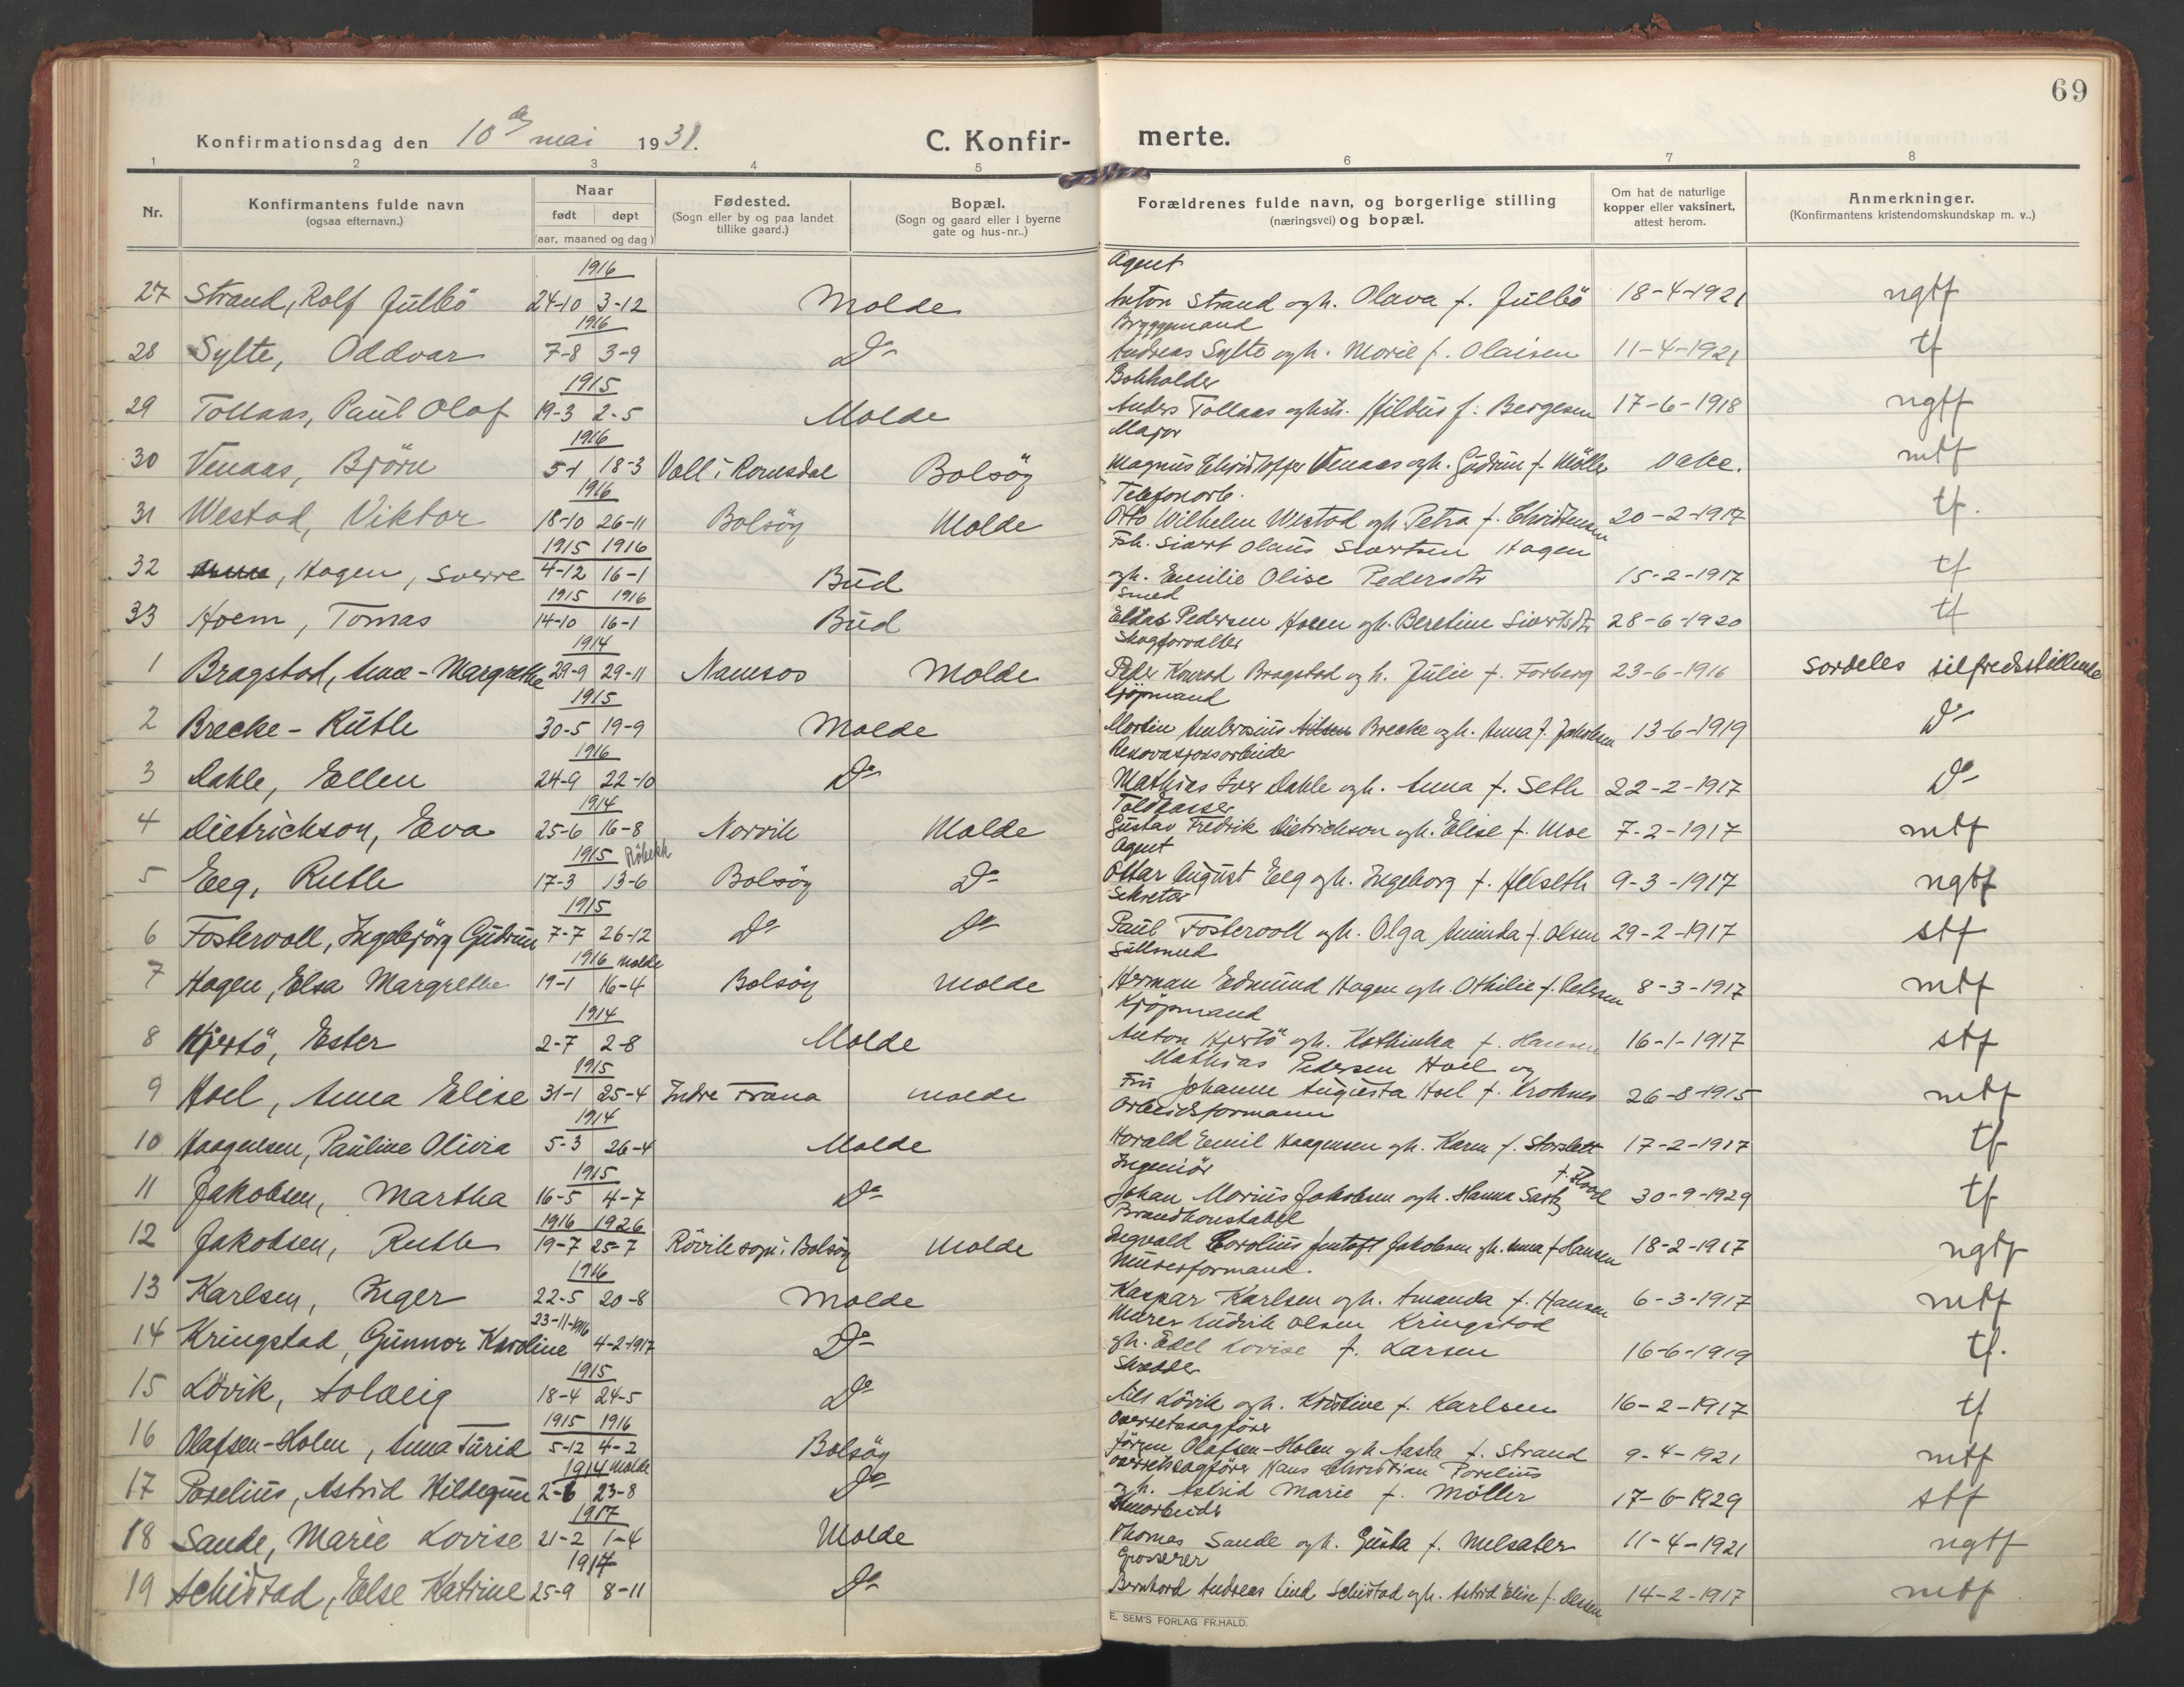 69
Konfirmationsdag den 10de mai 1931.
C. Konfir- merte.
1 2 3 4 5 6 7 8
Nr.
Konfirmantens fulde navn
(ogsaa efternavn.)
Naar
født døpt
(aar, maaned og dag)
Fødested.
(Sogn eller by og paa landet
tillike gaard.)
Bopæl.
(Sogn og gaard eller i byerne
gate og hus-nr..)
Forældrenes fulde navn, og borgerlige stilling
(næringsvei) og bopæl.
Om hat de naturlige
kopper eller vaksinert,
attest herom.
Anmerkninger.
(Konfirmantens kristendomskundskap m. v..)
1916 Agent
27 Strand, Rolf Julbö 24-10 3-12 Molde Anton Strand og h. Olava f. Julbö 18-4-1921 ngtf
1916 Bryggemand
28 Sylte, Oddvar 7-8 3-9 Do Andreas Sylte og h. Marie f. Olaisen 11-4-1921 tf
1915 Bokholder
29 Tollaas, Paul Olaf 19-3 2-5 Molde Anders Tollaas og h. Hildus f. Bergesen 17-6-1918 ngtf
1916 Major
30 Venaas, Björn 5-1 18-3 Voll i Romsdal Bolsöy Magnus Christoffer Venaas og h. Gudrun f. Möller vakc. mtf
1916 Telefonarb.
31 Westad, Viktor 18-10 26-11 Bolsöy Molde Otto Wilhelm Westad og h. Petra f. Christensen 20-2-1917 tf.
1915 1916 Fisk. Sivert Olaus Sivertsen Hagen
32 Hagen, Sverre 4-12 16-1 Bud og h. Emilie Olise Pedersdtr 15-2-1917 tf
1915 1916 Smed
33 Hoem, Tomas 14-10 16-1 Bud Elias Pedersen Hoem og h. Beretine Sivertsdtr 28-6-1920 tf
1914 Skogforvalter
1 Bragstad, Anne-Margrethe 29-9 29-11 Namsos Molde Peder Konrad Bragstad og h. Julie f. Forberg 23-6-1916 særdeles tilfredsstillende
1915 Kjöpmand
2 Brecke - Ruth 30-5 19-9 Molde Martin Ambrosius Brecke og h. Anna f. Jakobsen 13-6-1919 Do
1916 Renovasjonsarbeider
3 Dahle, Ellen 24-9 22-10 Do Mathias Iver Dahle og h. Anna f. Seth 22-2-1917 Do
1914 Toldkasser
4 Dietrichson, Eva 25-6 16-8 Narvik Molde Gustav Fredrik Dietrichson og h. Elise f. Moe 7-2-1917 mtf
1915 Röbekk Agent
5 Eeg, Ruth 17-3 13-6 Bolsöy Do Ottar August Eeg og h. Ingeborg f. Helseth 9-3-1917 ngtf
1915 Sekretær
6 Fostervoll, Ingebjörg Gudrun 7-7 26-12 Do Do Paul Fostervoll og h. Olga Aminda f. Olsen 29-2-1917 stf
1916 Molde Gullsmed
7 Hagen, Elsa Margrethe 19-1 16-4 Bolsöy Molde Herman Edmund Hagen og h. Othilie f. 8-3-1917 mtf
1914 Kjöpmand
8 Hjertö, Ester 2-7 2-8 Molde Anton Hjertö og h. Kathinka f. Hansen 16-1-1917 stf
1915 Mathias Pedersen Hoel og
9 Hoel, Anna Elise 31-1 25-4 Indre Fræna Molde Fru Johanne Augusta Hoel f. Krohnes 26-8-1915 mtf
1914 Arbeidsformann
10 Haagensen, Pauline Olivia 5-3 26-4 Molde Harald Emil Haagensen og h. Karen f. Storslett 17-2-1917 tf
1915 Ingeniör
11 Jakobsen, Martha 16-5 4-7 Do Johan Marius Jakobsen og h. Hanna 30-9-1929 tf
1916 1926 Brandkonstabel
12 Jakobsen, Ruth 19-7 25-7 Rövik sogn i Bolsöy Molde Ingvald Carolius Jakobsen og h. Anna f. Hansen 18-2-1917 ngtf
1916 Murerformand.
13 Karlsen, Inger 22-5 20-8 Molde Kaspar Karlsen og h. Amanda f. Hansen 6-3-1917 mtf
23-11-1916 Murer Ludvik Olsen Kringstad
14 Kringstad, Gunnor Karoline 4-2-1917 Do og h. Edel Lovise f. Larsen 16-6-1919 tf.
1915 Skredder
15 Lövik, Solveig 18-4 24-5 Do Nils Lövik og h. Kristine f. Karlsen 16-2-1917 tf
1915 1916 Overretssagförer
16 Olafsen-Holm, Anna Turid 5-12 4-2 Bolsöy Jörgen Olafsen-Holm og h. Aasta f. Strand 9-4-1921 mtf
1914 Molde Overretssagförer Hans Christian Porelius
17 Porelius, Astrid Hildegun 2-6 23-8 Do og h. Astrid Marie f. Möller 17-6-1929 stf
1917
18 Sande, Marie Lovise 21-2 1-4 Molde Thomas Sande og h. Gusta f. Melsæter 11-4-1921 ngtf
1914 Grosserer
19 Schistad, Else Katrine 25-9 8-11 Do Bernhard Andreas Lind Schistad og h. Astrid Elise f. Olsen 14-2-1917 mtf
E. SEM'S FORLAG FR.HALD.